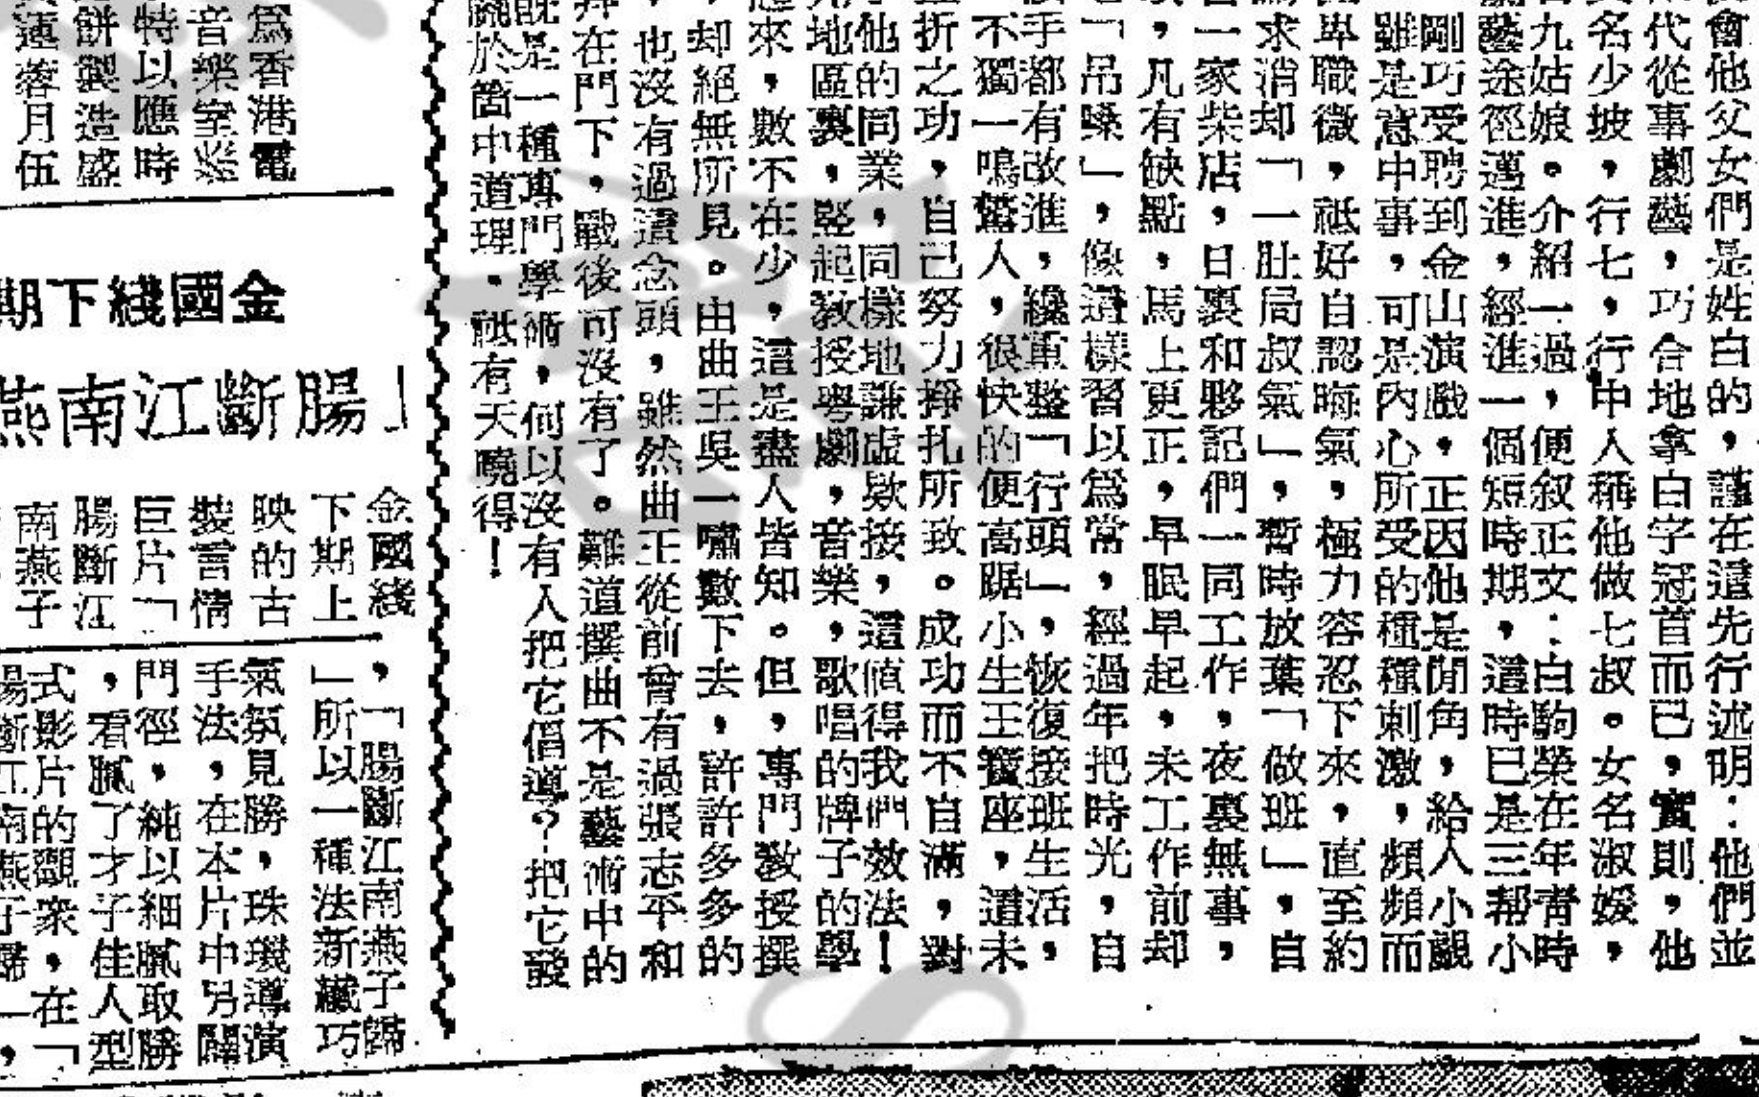 會他父女們是姓白的，謹在這先行述明：他們並
代從事劇藝，巧合地拿白字冠首而已，實則，他
名少坡，行七，行中人稱他做七叔。女名淑媛，
九姑娘。介紹一過，便叙正文：白駒榮在年青時
藝途徑邁進，經進一個短時期，這時已是三幫小
剛巧受聘到金山演戲，正因他是閒角，給人小覷
雖是意中事，可是內心所受的種種刺激，頻頻而
卑職微，祗好自認晦氣，極力容忍下來，直至約
求消却「一肚局叔氣」，暫時放葉「做班」，自
一家柴店，日裏和夥記們一同工作，夜裏無事，
，凡有缺點，馬上更正，早眠早起，未工作前却
「吊嗓」，像這樣習以爲常，經過年把時光，自
手都有改進，纔重整「行頭」，恢復接班生活，
不獨一鳴驚人，很快的便高踞小生王寶座，這未
折之功，自己努力掙扎所致。成功而不自滿，對
他的同業，同樣地謙虛欵接，這值得我們效法！
地區裏，竪起教授粤劇，音樂，歌唱的牌子的學
來，數不在少，這是盡人皆知。但，專門教授撰
，却絕無所見。由曲王吳一嘯數下去，許許多多的
，也沒有過這念頭，雖然曲王從前曾有過張志平和
在門下，戰後可沒有了。難道撰曲不是藝術中的
既是一種專門學術，何以沒有人把它倡導？把它發
關於箇中道理，祗有天曉得！
爲香港電
音樂室
特以應時
餅製造盛
蓮蓉月伍
金國綫下期
「腸斷江南燕
金國綫
下期上
映的古
裝言情
巨片「
腸斷江
南燕子
，「腸斷江南燕子歸
」所以一種法新纖巧
氣氛見勝，珠璣導演
手法，在本片中另闢
門徑，純以細膩取勝
，看膩了才子佳人型
式影片的觀衆，在「
腸斷江南燕子歸」，